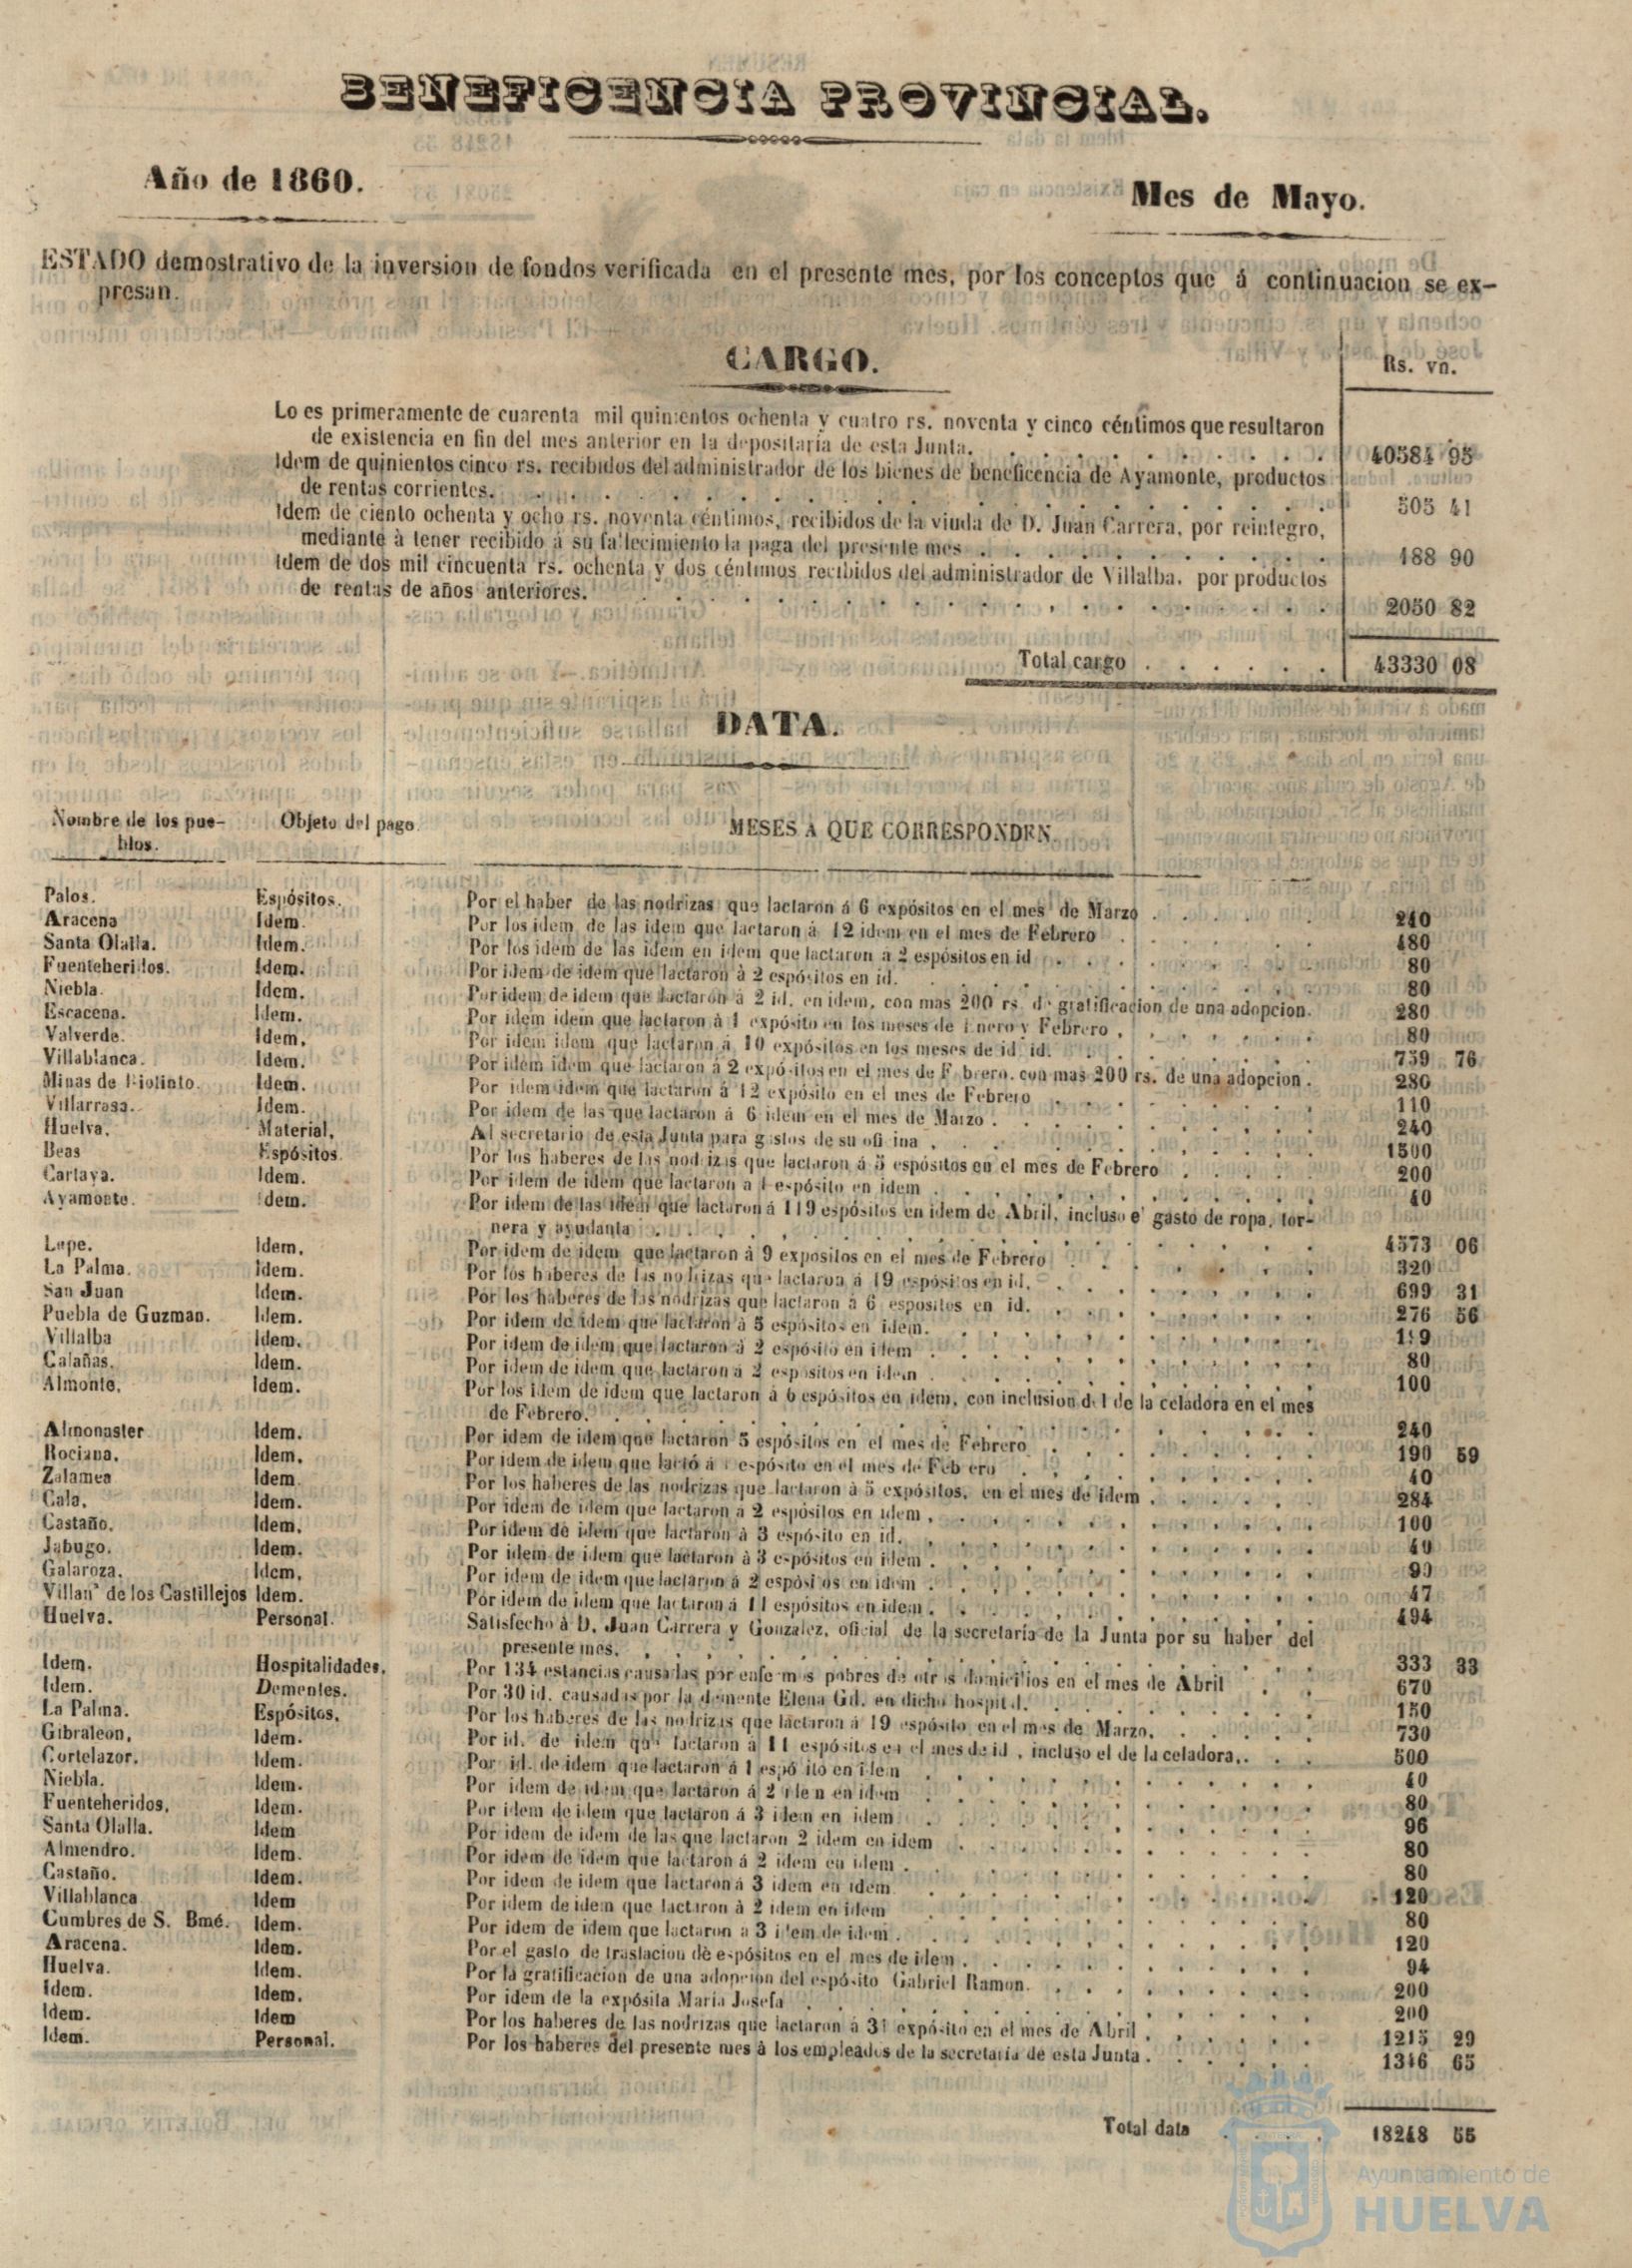 BENEFICENCIA PROVINCIAL.
Año de 1860.
Mes de Mayo.
ESTADO demostrativo de la inversion de fondos verificada en el presente mes, por los conceptos que á continuacion se ex-
presan.
CARGO.
Rs. vn.
Lo es primeramente de cuarenta mil quinientos ochenta y cuatro rs. noventa y cinco céntimos que resultaron
de existencia en fin del mes anterior en la depositaría de esta Junta. 40584 95
Idem de quinientos cinco rs. recibidos del administrador de los bienes de beneficencia de Ayamonte, productos
de rentas corrientes. 505 41
Idem de ciento ochenta y ocho rs. noventa céntimos, recibidos de la viuda de D. Juan Carrera, por reintegro,
mediante à tener recibido á su fallecimiento la paga del presente mes 188 90
Idem de dos mil cincuenta rs. ochenta y dos céntimos recibidos del administrador de Villalba, por productos
de rentas de años anteriores. 2050 82
Total cargo 43330 08
DATA.
Nombre de los pue-
blos.
Objeto del pago.
MESES A QUE CORRESPONDEN
Palos. Espósitos. Por el haber de las nodrizas que lactaron á 6 expósitos en el mes de Marzo 240
Aracena Idem. Por los idem de las idem que lactaron á 12 idem en el mes de Febrero 480
Santa Olalla. Idem. Por los idem de las idem en idem que lactaron a 2 espósitos en id 80
Fuenteheridos. Idem. Por idem de idem que lactaron à 2 espósitos en id. 80
Niebla. Idem. Por idem de idem que lactaron á 2 id. en idem, con mas 200 rs. de gratificacion de una adopcion. 280
Escacena. Idem. Por idem idem que lactaron à 1 expósito en los meses de Enero y Febrero 80
Valverde. Idem. Por idem idem que lactaron á 10 expósitos en los meses de id id. 759 76
Villablanca. Idem. Por idem idem que lactaron á 2 expósitos en el mes de Febrero, con mas 200 rs. de una adopcion. 280
Minas de Riotinto. Idem. Por idem idem que lactaron á 12 expósito en el mes de Febrero 110
Villarrasa. Idem. Por idem de las que lactaron á 6 idem en el mes de Marzo 240
Huelva. Material, Al secretario de esta Junta para gastos de su oficina 1500
Beas Espósitos. Por los haberes de las nodrizas que lactaron á 5 espósitos en el mes de Febrero 200
Cartaya. Idem. Por idem de idem que lactaron a 1 espósito en idem 40
Ayamonte. Idem. Por idem de las idem que lactaron á 119 espósitos en idem de Abril, incluso el gasto de ropa, tor-
nera y ayudanta 4573 06
Lepe. Idem. Por idem de idem que lactaron à 9 expositos en el mes de Febrero 320
La Palma. Idem. Por los haberes de las nodrizas que lactaron á 19 espósitos en id. 699 31
San Juan Idem. Por los haberes de las nodrizas que lactaron á 6 espositos en id. 276 56
Puebla de Guzman. Idem. Por idem de idem que lactaron á 5 espósitos en idem.
Villalba Idem. Por idem de idem que lactaron á 2 espósito en idem 80
Calañas. Idem. Por idem de idem que lactaron á 2 espositos en idem 100
Almonte. Idem. Por los idem de idem que lactaron á 6 espósitos en idem, con inclusion del de la celadora en el mes
de Febrero. 240
Almonaster Idem. Por idem de idem que lactaron 5 espósitos en el mes de Febrero 190 59
Rociana. Idem. Por idem de idem que lactó á espósito en el mes de Febrero 40
Zalamea Idem Por los haberes de las nodrizas que lactaron á 5 expósitos, en el mes de idem 284
Cala. Idem. Por idem de idem que lactaron a 2 espósitos en idem 100
Castaño. Idem. Por idem de idem que lactaron à 3 espósito en id. 40
Jabugo. Idem. Por idem de idem que lactaron à 3 espósitos en idem 90
Galaroza. Idem, Por idem de idem que lactaron á 2 espósitos en idem 47
Villanª de los Castillejos Idem. Por idem de idem que lactaron á 11 espósitos en idem. 494
Huelva. Personal. Satisfecho à D. Juan Carrera y Gonzalez, oficial de la secretaría de la Junta por su haber del
presente mes. 333 33
Idem. Hospitalidades. Por 134 estancias causadas por enfermos pobres de otros domicilios en el mes de Abril 670
Idem. Dementes. Por 30 id. causadas por la demente Elena Gd. en dicho hospital. 150
La Palma. Espósitos. Por los haberes de las nodrizas que lactaron á 19 espósito en el mes de Marzo. 730
Gibraleon, Idem. Por id. de idem que lactaron à 11 espósitos en el mes de id, incluso el de la celadora. 500
Cortelazor. Idem. Por id. de idem que lactaron á 1 espósito en idem 40
Niebla. Idem. Por idem de idem que lactaron á 2 idem en idem 80
Fuenteheridos, Idem. Por idem de idem que lactaron á 3 idem en idem 96
Santa Olalla. Idem Por idem de idem de las que lactaron 2 idem en idem 80
Almendro. Idem. Por idem de idem que lactaron á 2 idem en idem 80
Castaño. Idem. Por idem de idem que lactaron á 3 idem en idem 120
Villablanca Idem Por idem de idem que lactaron à 2 idem en idem 80
Cumbres de S. Bmé. Idem. Por idem de idem que lactaron a 3 idem de idem 120
Aracena. Idem. Por el gasto de traslacion de espósitos en el mes de idem 94
Huelva. Idem. Por la gratificacion de una adopcion del espósito Gabriel Ramon. 200
Idem. Idem. Por idem de la expósita Maria Josefa 200
Idem. Idem Por los haberes de las nodrizas que lactaron á 31 expósito en el mes de Abril 1215 29
Idem. Personal. Por los haberes del presente mes à los empleados de la secretaría de esta Junta 1346 65
Total data 18248 55
Ayuntamiento de
HUELVA